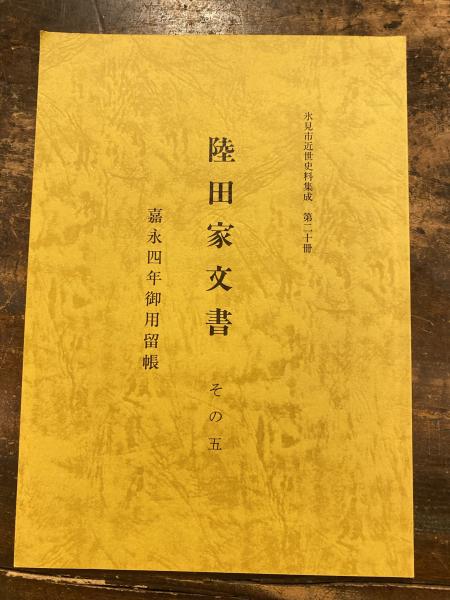 氷見市近世史料集成 第二十冊
陸田家文書 その五
嘉永四年御用留帳